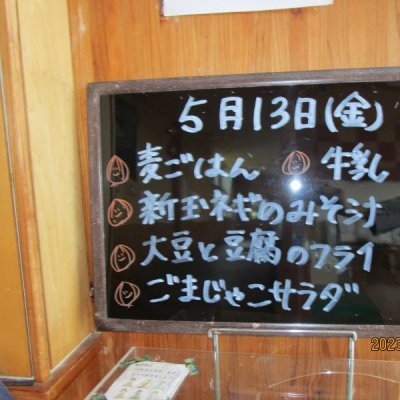 5月13日(金)
麦ごはん 牛乳
新玉ネギのみそ汁
大豆と豆腐のフライ
ごまじゃこサラダ
2023